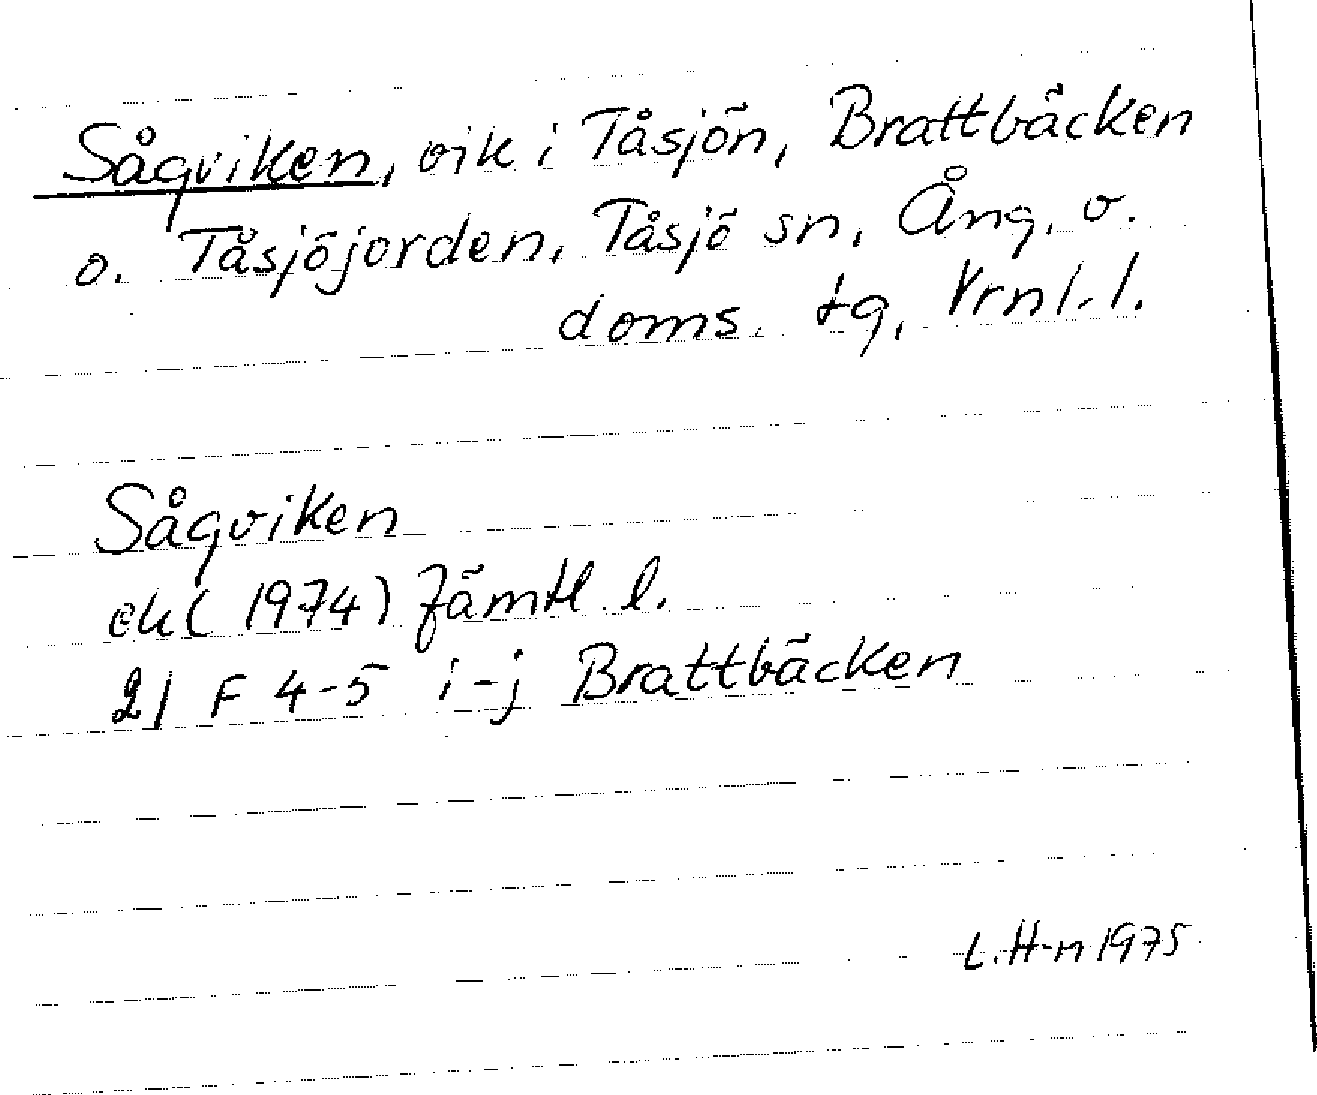 Sågviken, vik i Tåsjön, Brattbäcken
o. Tåsjöjorden, Tåsjö sn, Ång. v.
doms. tg, Vrnl. l.
Sågviken
ek (1974) Jämtl l.
21 F 4-5 i-j Brattbäcken
L. H-n 1975